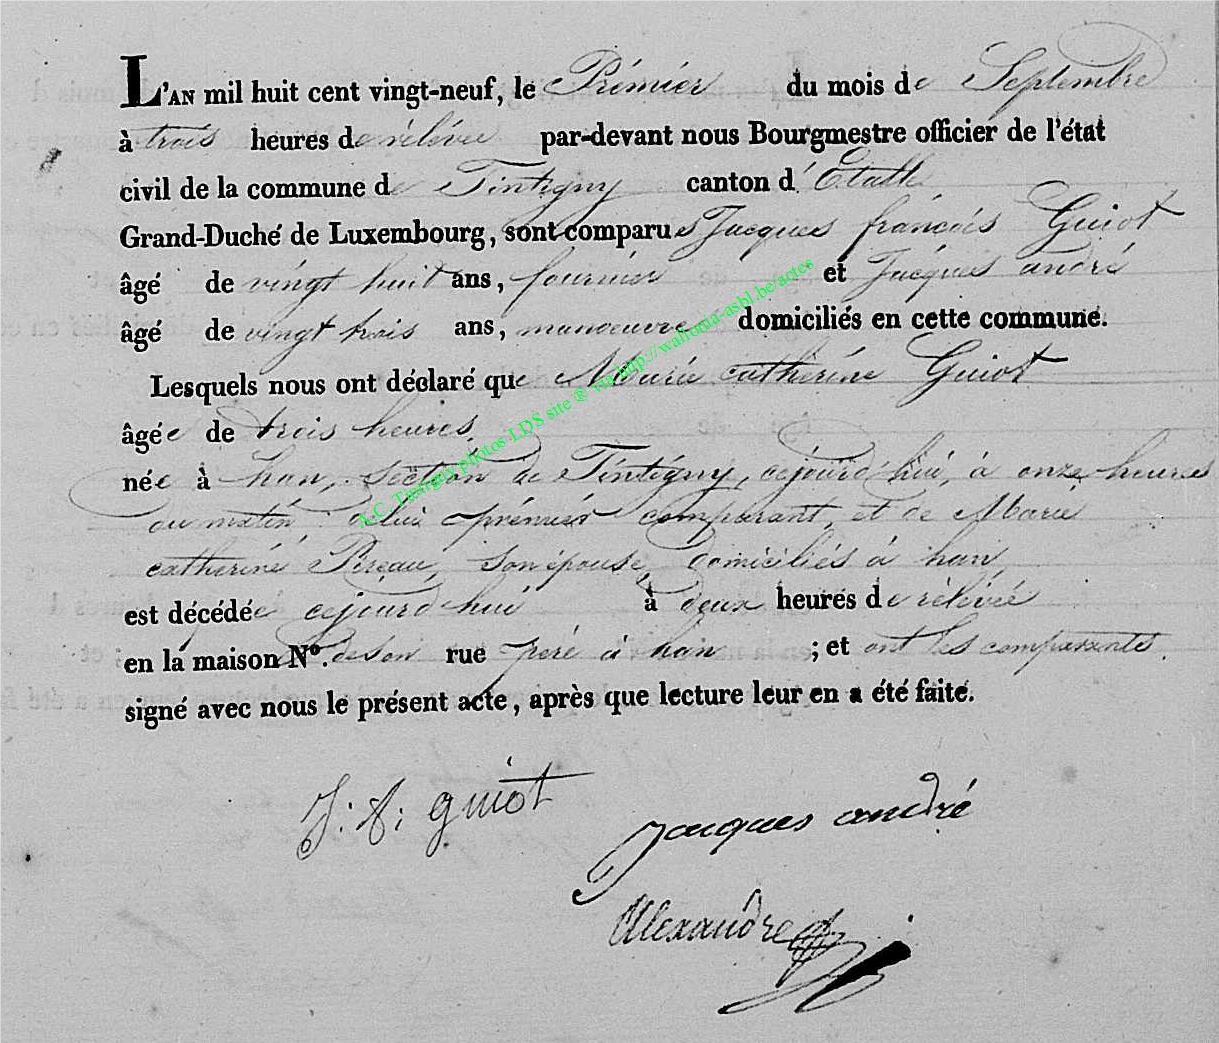 L'AN mil huit cent vingt-neuf, le Prémier du mois de Septembre
à trois heures de rélévée par-devant nous Bourgmestre officier de l'état
civil de la commune de Tintigny canton d'Etalle
Grand-Duché de Luxembourg, sont comparus Jacques françois Guiot
âgé de vingt huit ans, fournier et Jacques andré
âgé de vingt trois ans, manoeuvre domiciliés en cette commune.
Lesquels nous ont déclaré que Marie catherine Guiot
âgée de trois heures,
née à han, section de Tintigny, cejourd'hui, à onze heures
du matin, delui prémier comparant, et de Marie
catherine Pireau, son épouse, domiciliés à han
est décédée cejourd'hui à deux heures de rélévée
en la maison N°. de son rue péré à han ; et ont les comparants.
signé avec nous le présent acte, après que lecture leur en a été faite.
J: f: guiot
jacques andré
Alexandre
A.C. Tintigny photos LDS site ® via http://wallonia-asbl.be/actes